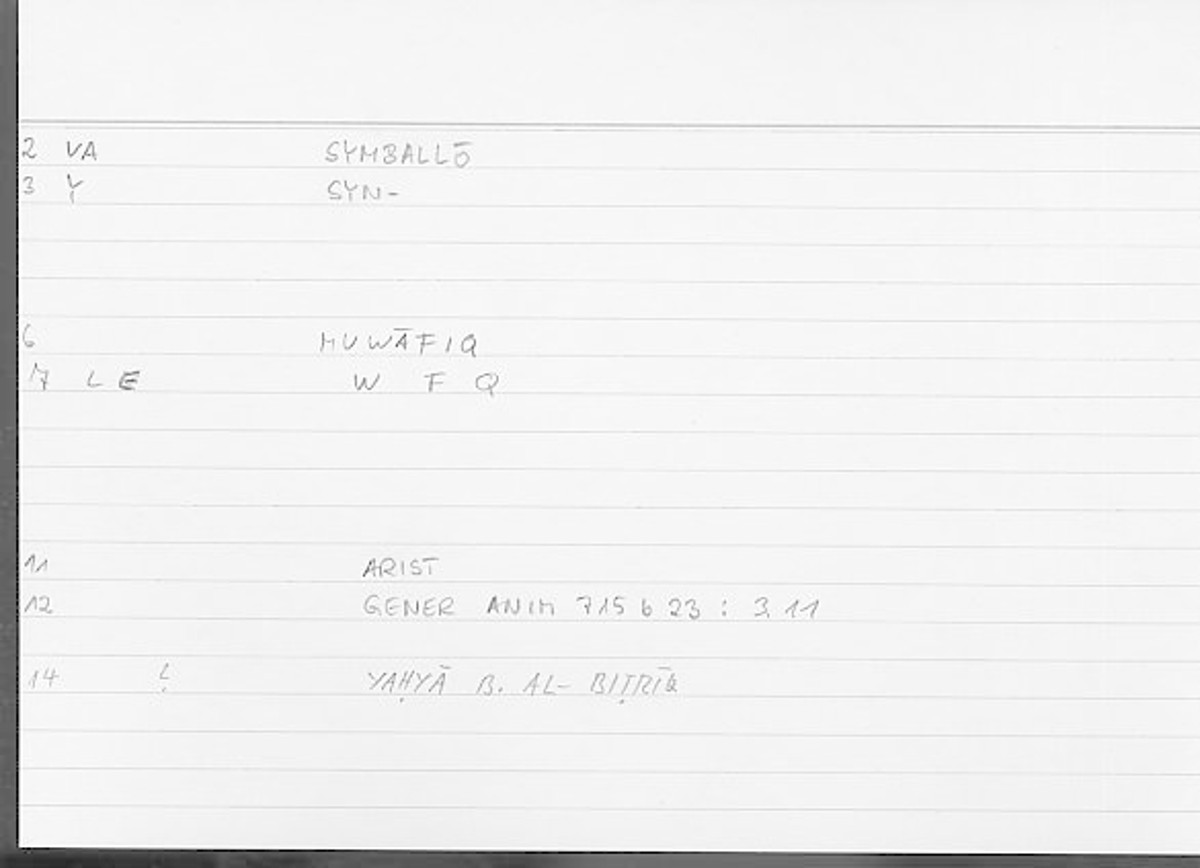 2 VA SYMBALLŌ
3 Y SYN-
6 MUWĀFIQ
7 LE W F Q
11 ARIST
12 GENER ANIM 715 b 23 : 3.11
14 YAḤYĀ B. AL- BIṬRĪQ